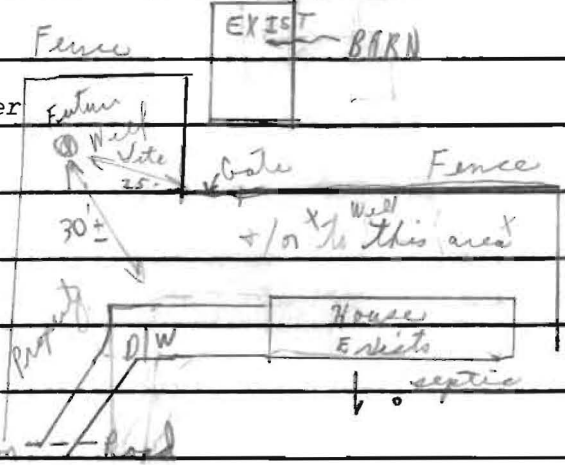 EXIST
BARN
Fence
er
Future
Well
Site
25'
Gate
Fence
30'±
+/or
Well
this area
property
House
Exists
D/W
septic
Road